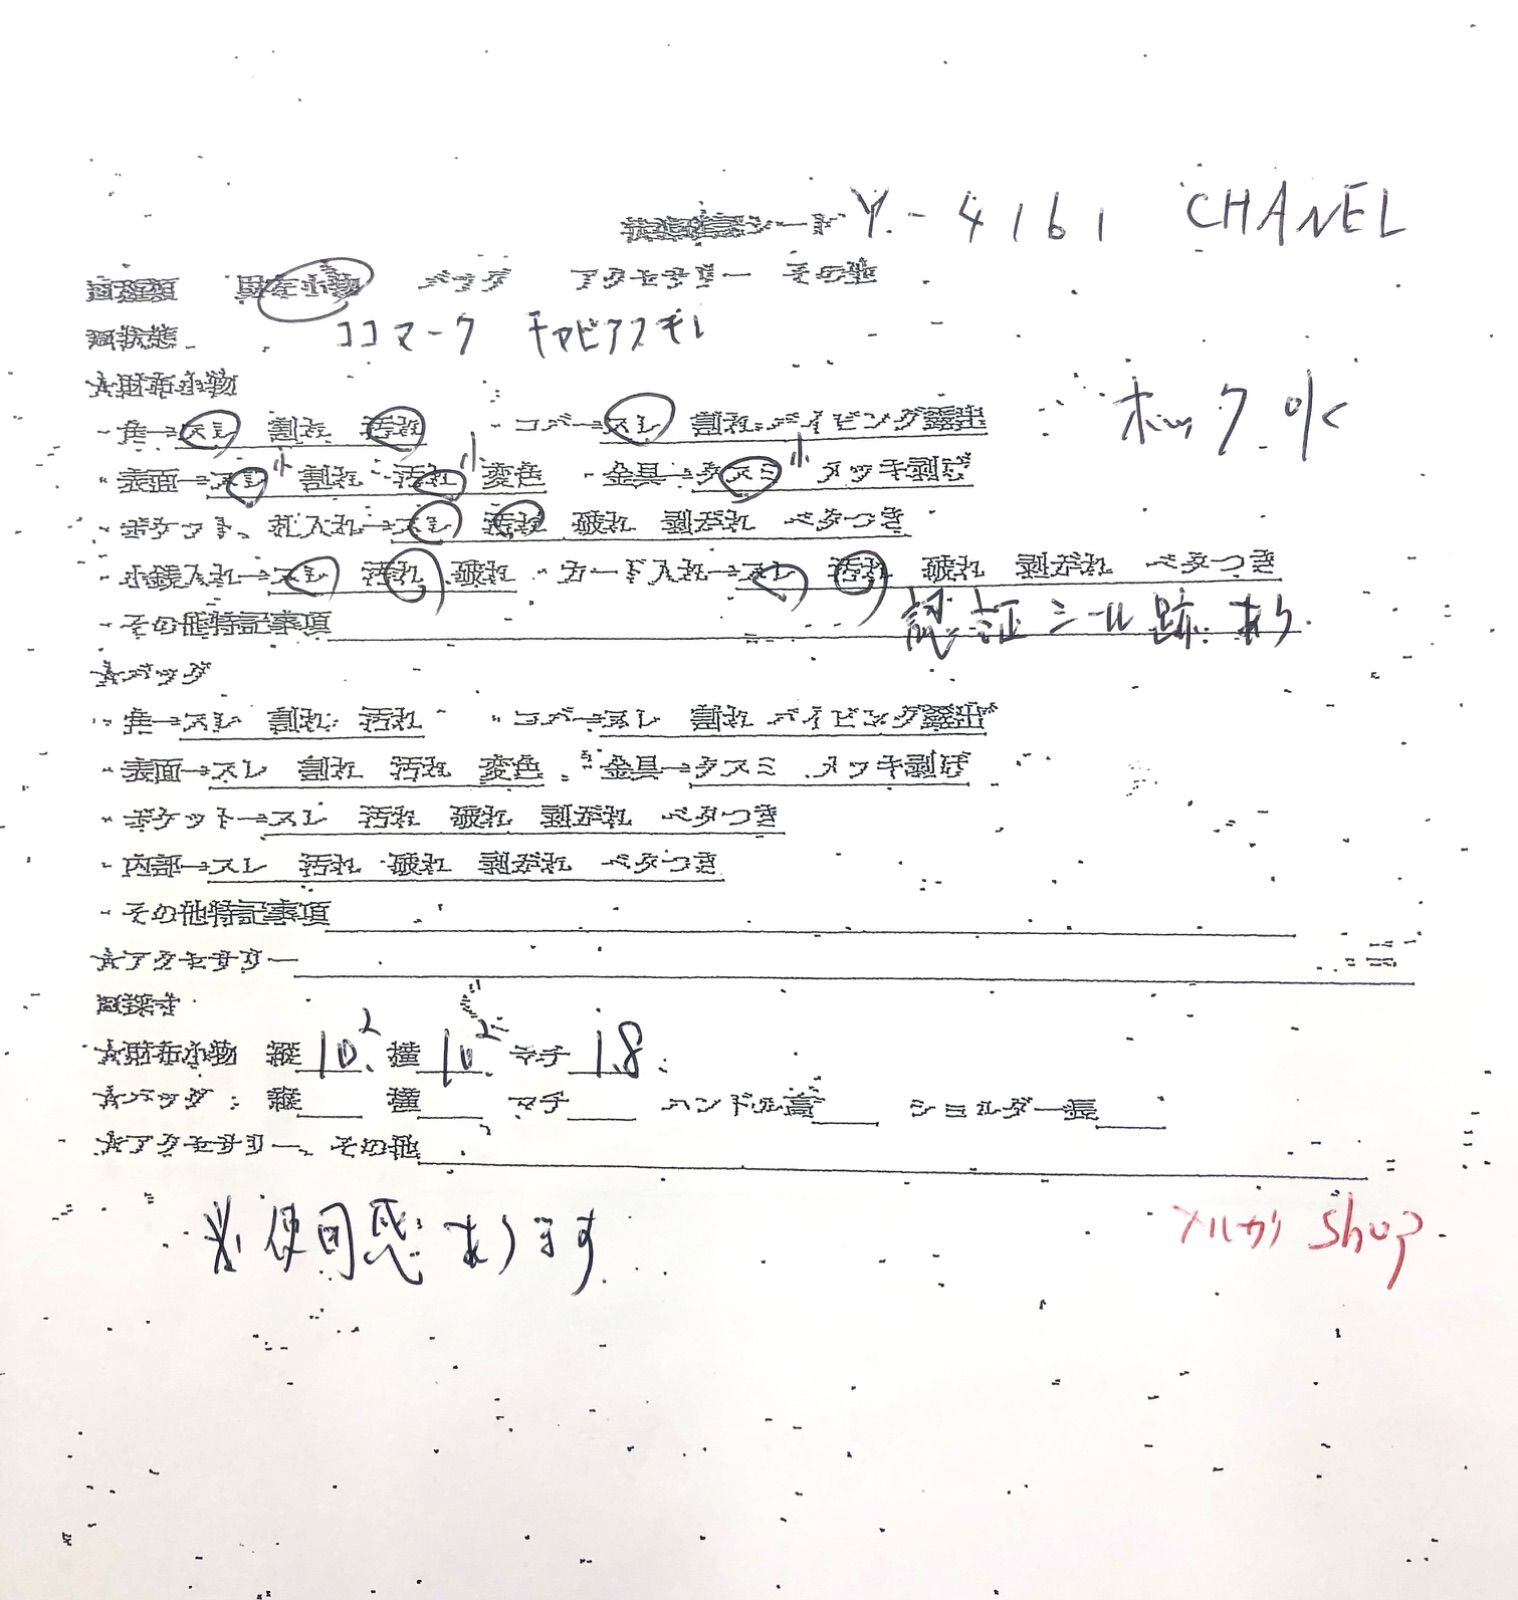 シート Y-4161 CHANEL
種類 財布小物 バッグ アクセサリー その他
状態 ココマーク キャビアスキン
☆財布小物
・角→スレ 割れ 汚れ ・コバ→スレ 割れ パイピング露出 ホック OK
・表面→スレ小 割れ 汚れ小 変色 ・金具→クスミ小 メッキ剥げ
・ポケット、札入れ→スレ 汚れ 破れ 剥がれ ベタつき
・小銭入れ→スレ 汚れ 破れ ・カード入れ→スレ 汚れ 破れ 剥がれ ベタつき
・その他特記事項 認証シール跡あり.
☆バッグ
・角→スレ 割れ 汚れ ・コバ→スレ 割れ パイピング露出
・表面→スレ 割れ 汚れ 変色 ・金具→クスミ メッキ剥げ
・ポケット→スレ 汚れ 破れ 剥がれ ベタつき
・内部→スレ 汚れ 破れ 剥がれ ベタつき
・その他特記事項
☆アクセサリー
採寸
☆財布小物 縦 10.2 横 10.2 マチ 1.8
☆バッグ 縦 横 マチ ハンドル高 ショルダー長
☆アクセサリー、その他
※使用感あります
メルカリ shop